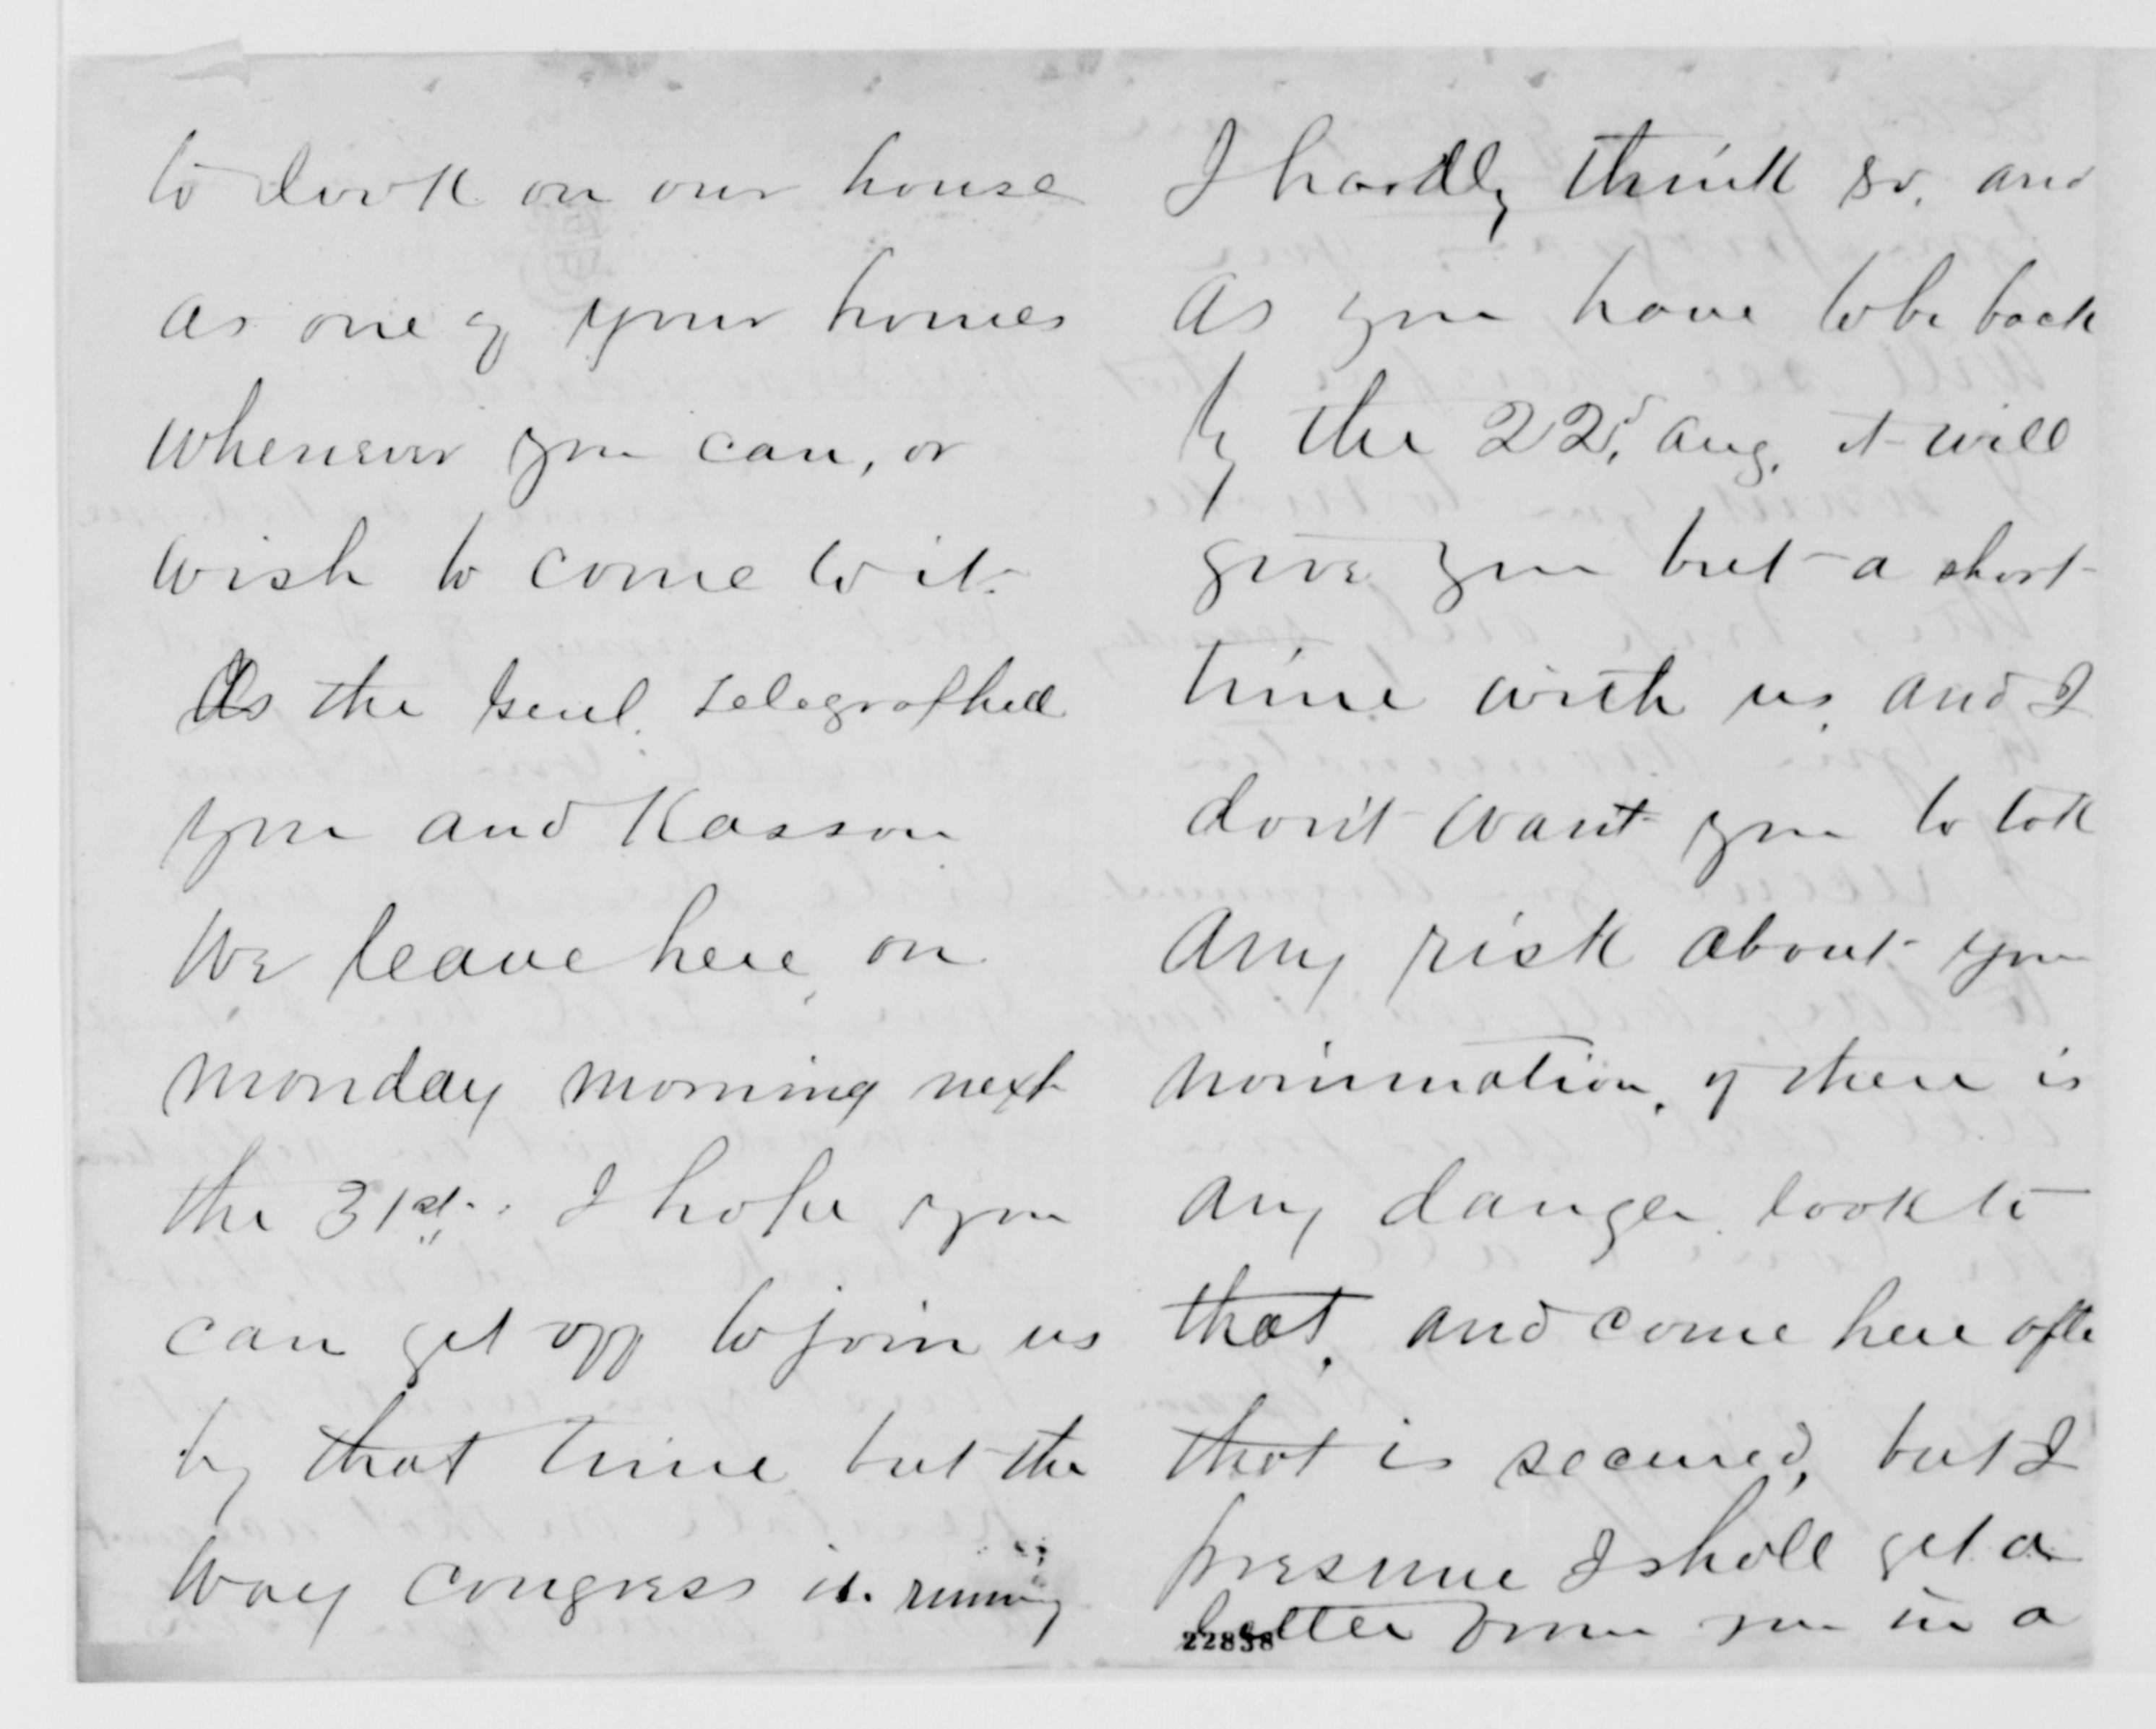 to look on our house
as one of your homes
whenever you can, or
wish to come to it.
As the Genl. telegraphed
you and Kasson
We leave here on
monday morning next
the 31st. I hope you
can get off to join us
by that time but the
way Congress is running
I hardly think so, and
as you have to be back
by the 22d, Aug. it will
give you but a short
time with us, and I
don't want you to tak
any risk about you
nomination, if there is
any danger look to
that, and come here afte
that is secured, but I
presume I shall get a
letter from you in a
22838